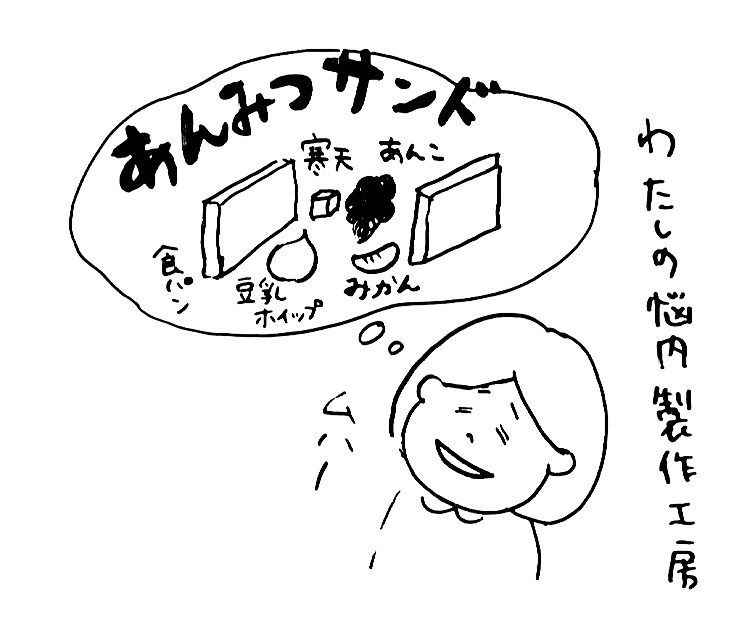 あんみつサンド
寒天
あんこ
食パン
豆乳
ホイップ
みかん
ムハー
わたしの悩内製作工房